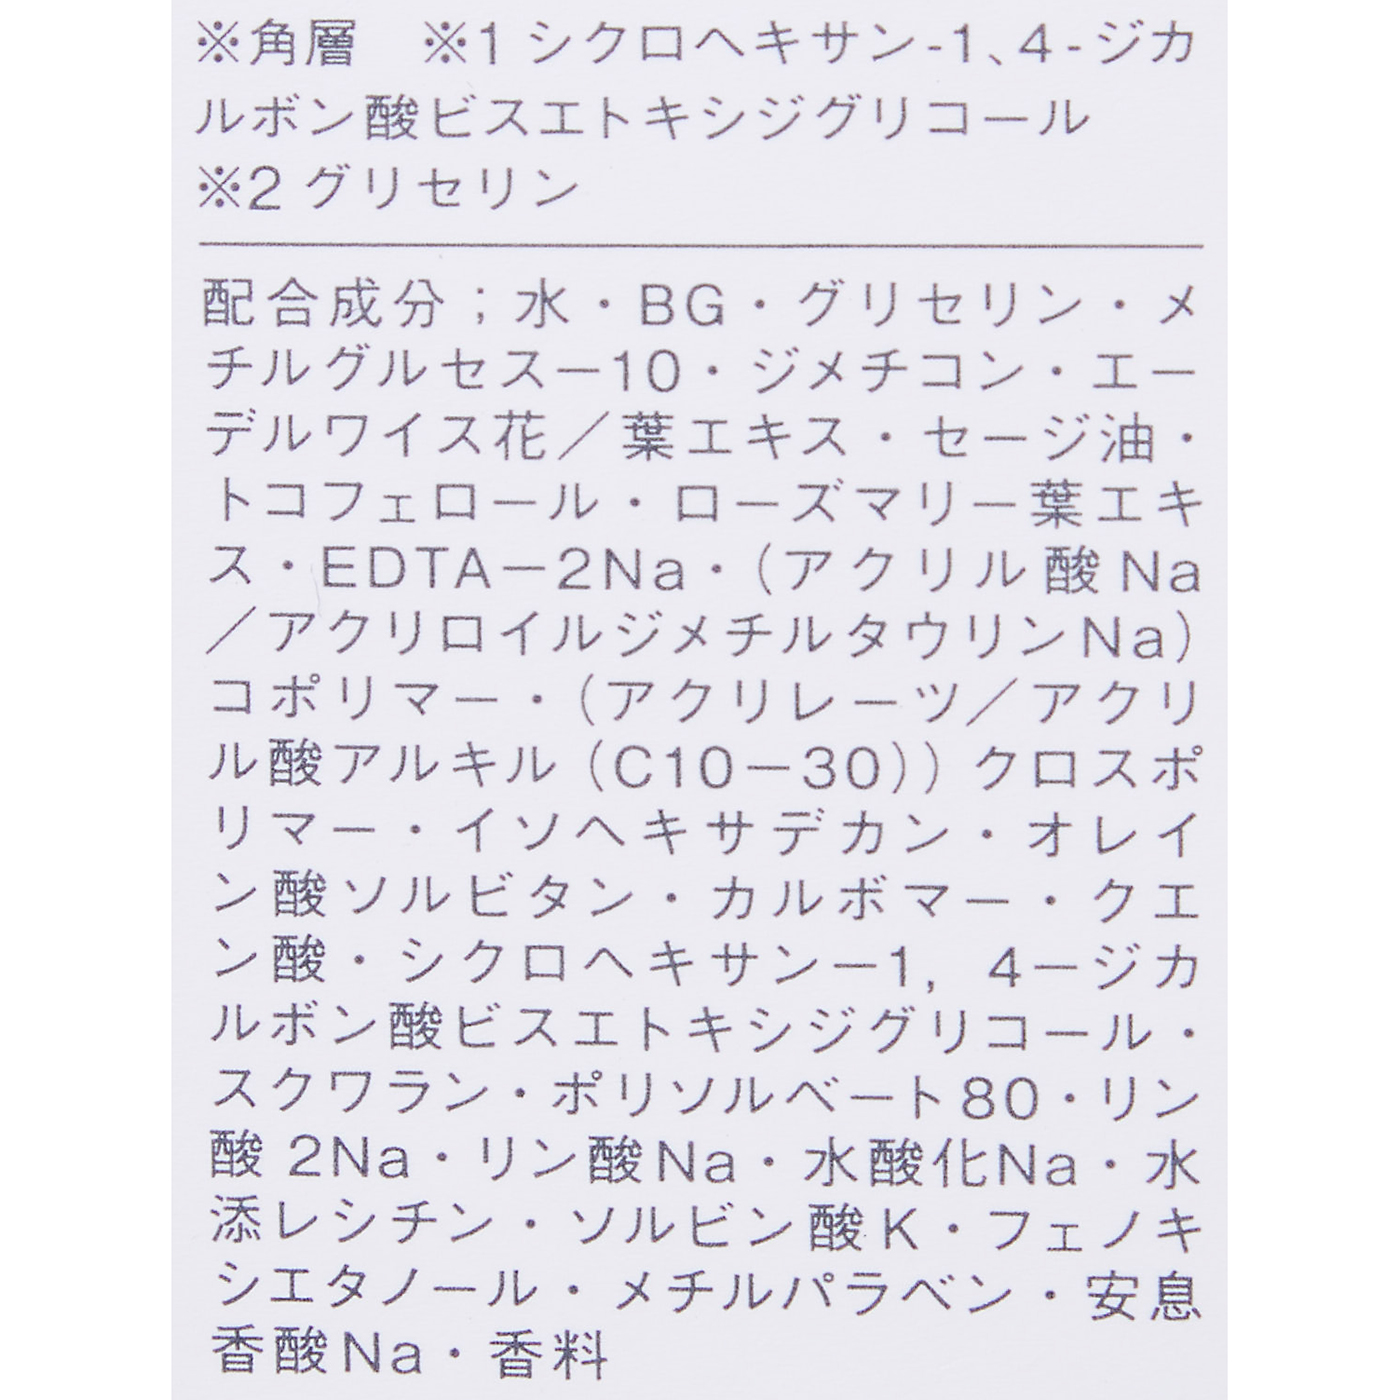 ※角層　※1 シクロヘキサン-1、4-ジカ
ルボン酸ビスエトキシジグリコール
※2 グリセリン
配合成分；水・BG・グリセリン・メ
チルグルセス－10・ジメチコン・エー
デルワイス花／葉エキス・セージ油・
トコフェロール・ローズマリー葉エキ
ス・EDTA－2Na・（アクリル酸Na
／アクリロイルジメチルタウリンNa）
コポリマー・（アクリレーツ／アクリ
ル酸アルキル（C10－30））クロスポ
リマー・イソヘキサデカン・オレイ
ン酸ソルビタン・カルボマー・クエ
ン酸・シクロヘキサン－1，4－ジカ
ルボン酸ビスエトキシジグリコール・
スクワラン・ポリソルベート80・リン
酸2Na・リン酸Na・水酸化Na・水
添レシチン・ソルビン酸K・フェノキ
シエタノール・メチルパラベン・安息
香酸Na・香料